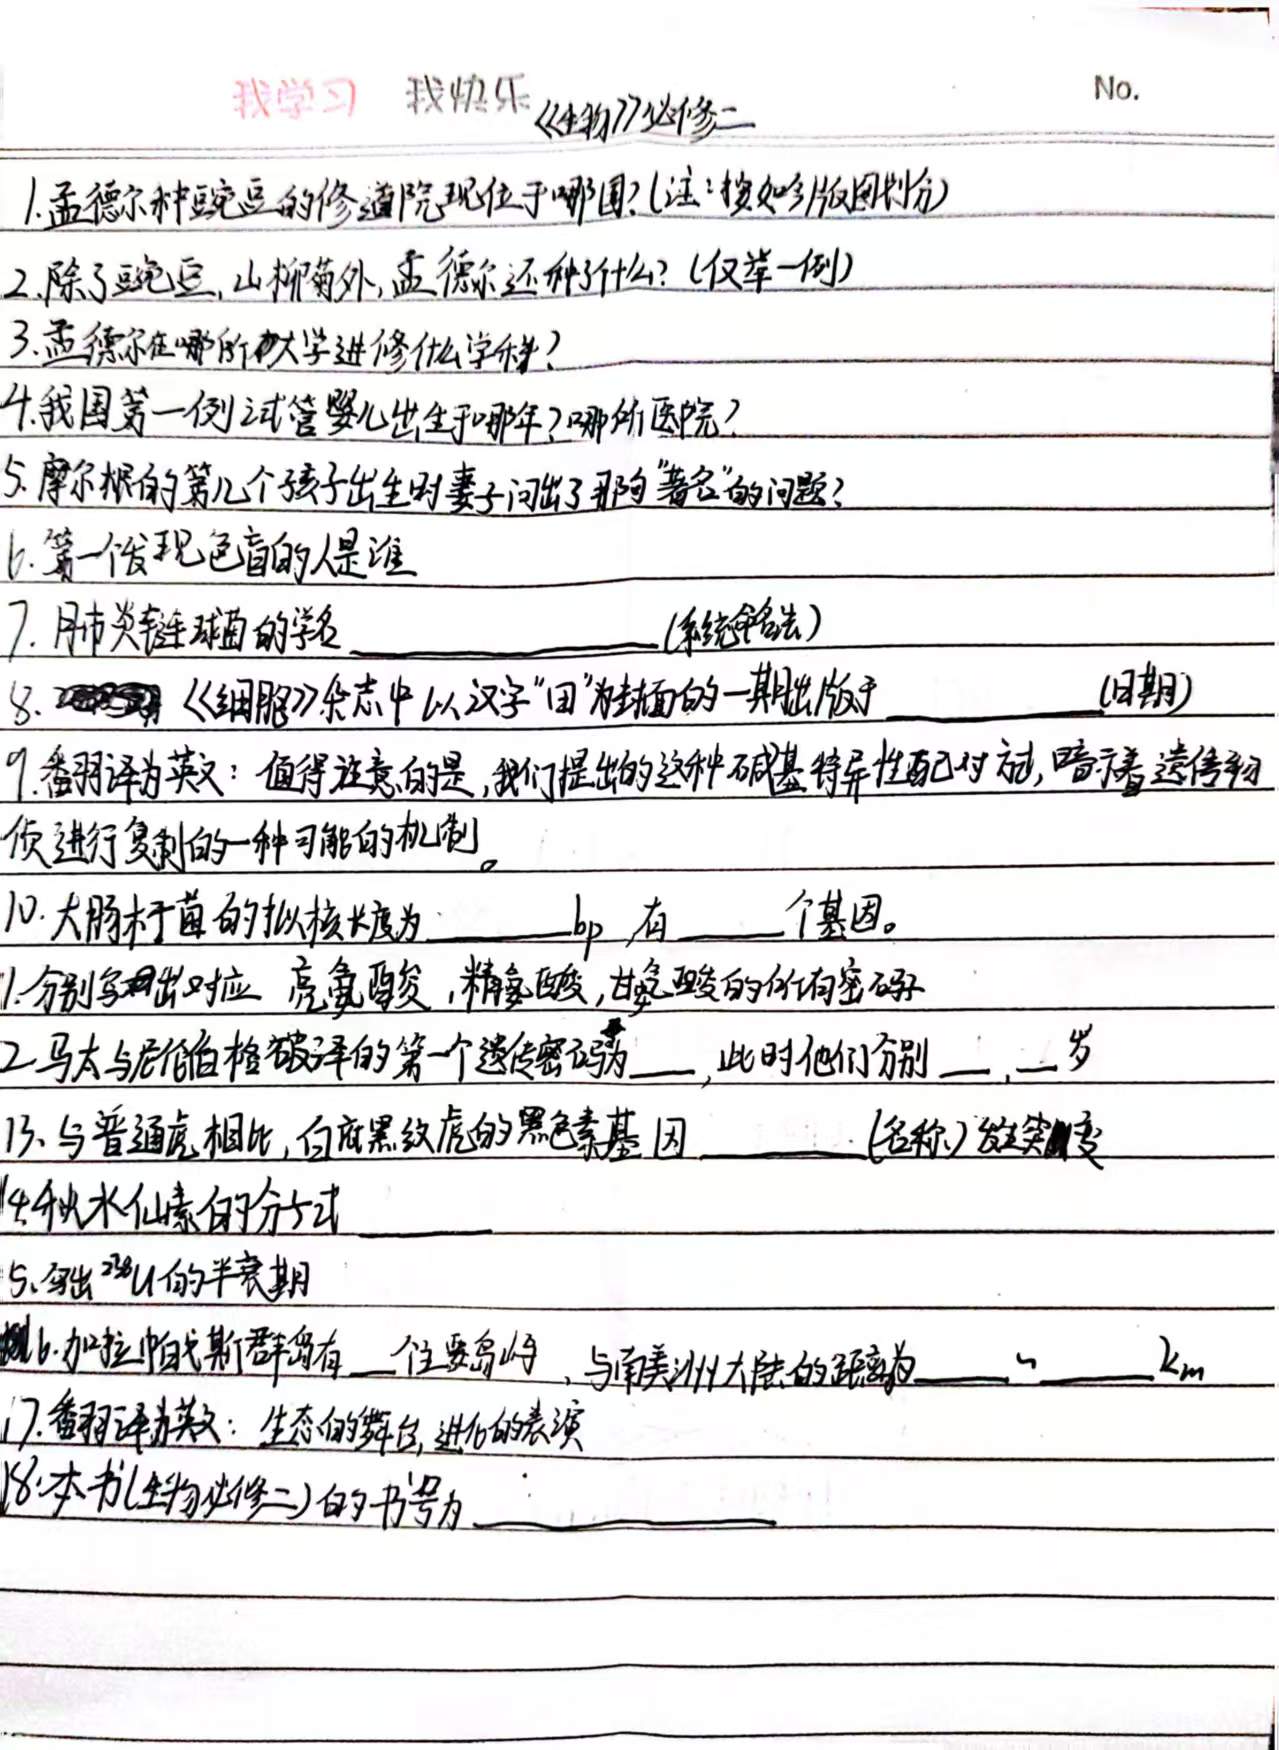 我学习 我快乐
No.
《生物》必修二
1.孟德尔种豌豆的修道院现位于哪国?(注:按如今版图划分)
2.除了豌豆,山柳菊外,孟德尔还种了什么?(仅举一例)
3.孟德尔在哪所大学进修什么学科?
4.我国第一例试管婴儿出生于哪年?哪所医院?
5.摩尔根的第几个孩子出生时妻子问出了那句"著名"的问题?
6.第一个发现色盲的人是谁
7.肺炎链球菌的学名 (系统命名法)
8.《细胞》杂志中以汉字"田"为封面的一期出版于 (日期)
9.翻译为英文:值得注意的是,我们提出的这种碱基特异性配对方式,暗示着遗传物
质进行复制的一种可能的机制。
10.大肠杆菌的拟核长度为 bp,有 个基因。
1.分别写出对应 亮氨酸,精氨酸,甘氨酸的所有密码子
2.马太与尼伦伯格破译的第一个遗传密码为 ,此时他们分别 , 岁
13、与普通虎相比,白底黑纹虎的黑色素基因 (名称)发生突变
14.秋水仙素的分子式
5、写出²³⁸U的半衰期
16.加拉帕戈斯群岛有 个主要岛屿,与南美洲大陆的距离为 ~ km
17.翻译为英文:生态的舞台,进化的表演
18.本书(生物必修二)的书号为